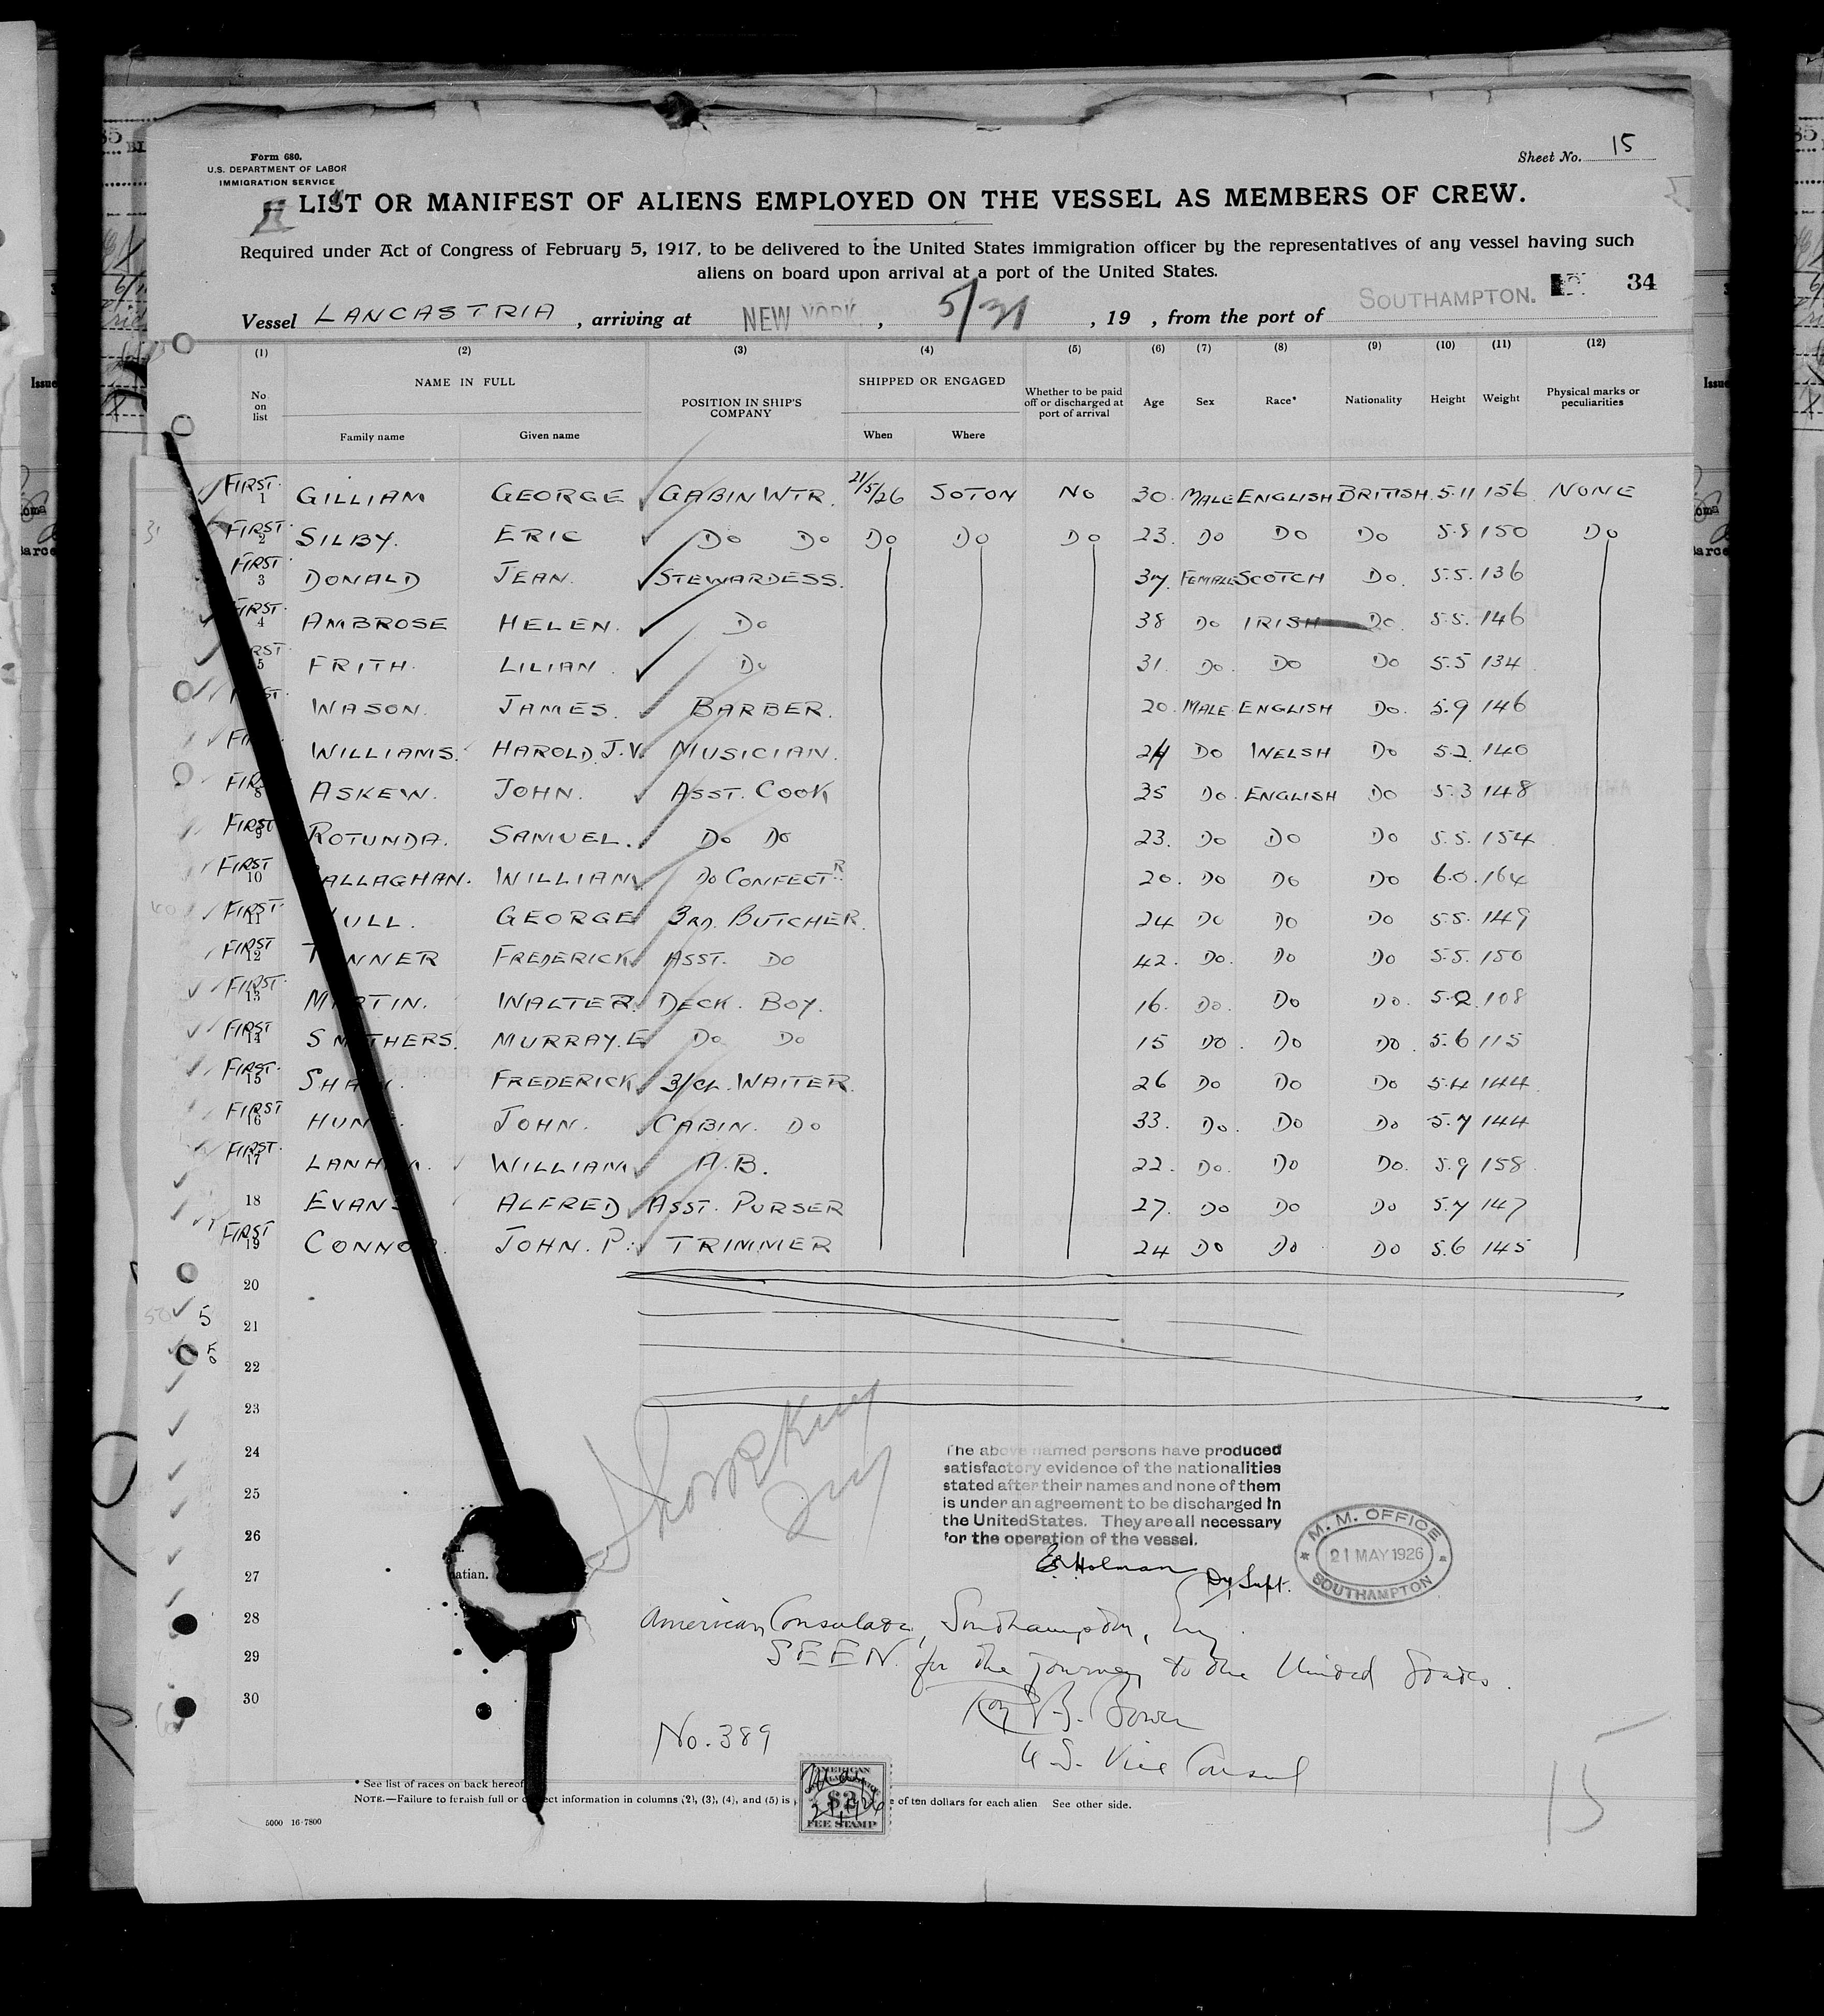 Form 680.
U.S. DEPARTMENT OF LABOR
IMMIGRATION SERVICE
Sheet No. 15
LIST OR MANIFEST OF ALIENS EMPLOYED ON THE VESSEL AS MEMBERS OF CREW.
Required under Act of Congress of February 5, 1917, to be delivered to the United States immigration officer by the representatives of any vessel having such
aliens on board upon arrival at a port of the United States.
34
Vessel LANCASTRIA, arriving at NEW YORK, 5/31, 19 , from the port of SOUTHAMPTON.
(1) (2) (3) (4) (5) (6) (7) (8) (9) (10) (11) (12)
No on list NAME IN FULL Family name Given name POSITION IN SHIP'S COMPANY SHIPPED OR ENGAGED When Where Whether to be paid off or discharged at port of arrival Age Sex Race* Nationality Height Weight Physical marks or peculiarities
FIRST 1 GILLIAM GEORGE CABIN WTR. 21/5/26 SOTON NO 30. MALE ENGLISH BRITISH 5.11 156 NONE
FIRST 2 SILBY. ERIC DO DO DO DO DO 23. DO DO DO 5.8 150 DO
FIRST 3 DONALD JEAN. STEWARDESS. 37. FEMALE SCOTCH DO. 5.5. 136
FIRST 4 AMBROSE HELEN. DO 38 DO IRISH DO. 5.5. 146
RST 5 FRITH. LILIAN. DO 31. DO. DO DO 5.5 134
ST WASON. JAMES. BARBER. 20. MALE ENGLISH DO. 5.9 146
FI WILLIAMS. HAROLD. J.V. MUSICIAN. 24 DO WELSH DO 5.2. 140
FIRS 8 ASKEW. JOHN. ASST. COOK 35 DO. ENGLISH DO 5.3 148
FIRST 9 ROTUNDA. SAMUEL. DO DO 23. DO DO DO 5.5. 154
FIRST 10 ALLAGHAN. WILLIAM DO CONFECTR. 20. DO DO DO 6.0. 164
FIRST 11 ULL. GEORGE 3RD. BUTCHER. 24 DO DO DO 5.5. 149
FIRST 12 T NNER FREDERICK ASST. DO 42. DO. DO DO 5.5. 150
FIRST 13 MARTIN. WALTER. DECK. BOY. 16. DO. DO DO. 5.2. 108
FIRST 14 SMITHERS. MURRAY. E DO DO 15 DO. DO DO. 5.6 115
FIRST 15 SHA FREDERICK 3/CL. WAITER. 26 DO DO DO 5.4 144.
FIRST 16 HUN JOHN. CABIN. DO 33. DO. DO DO 5.7 144
FIRST 17 LANH WILLIAM A.B. 22. DO. DO DO. 5.9 158.
18 EVANS ALFRED ASST. PURSER 27. DO DO DO 5.7 147
FIRST 19 CONNOR. JOHN. P. TRIMMER 24 DO DO DO 5.6 145
20
5 21
22
23
24
25
26
27
28
29
30
The above named persons have produced
satisfactory evidence of the nationalities
stated after their names and none of them
is under an agreement to be discharged in
the United States. They are all necessary
for the operation of the vessel.
Holman Dy Supt.
M. M. OFFICE
21 MAY 1926
SOUTHAMPTON
atian.
American Consulate, Southampton, Eng.
SEEN for the journey to the United States.
Roy B. Bower
U.S. Vice Consul
No. 389
AMERICAN
$2
FEE STAMP
* See list of races on back hereof
NOTE.—Failure to furnish full or correct information in columns (2), (3), (4), and (5) is e of ten dollars for each alien See other side.
5000 16-7800
15